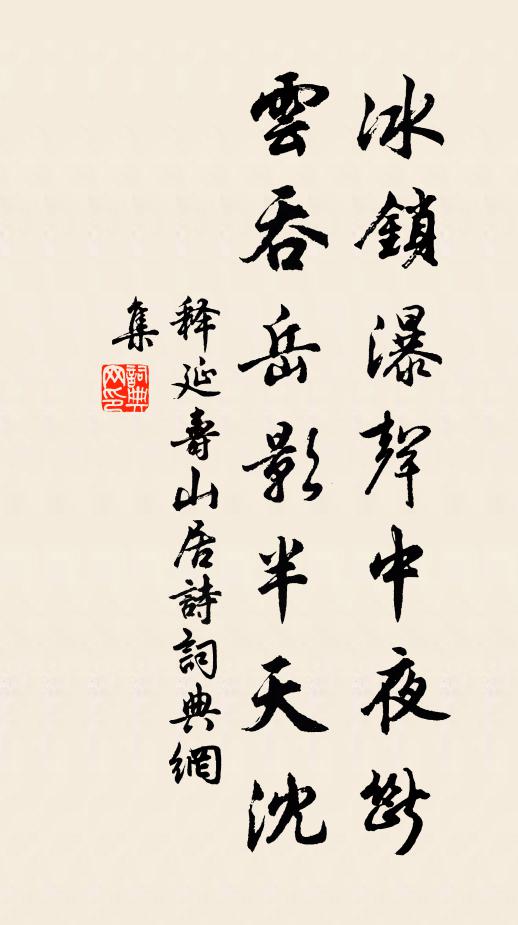 冰鎖瀑聲中夜斷
雲吞岳影半天沈
释延壽山居詩詞典網
集
詞典網印